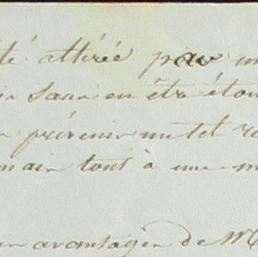 té attirée par un
sans en être éton
prévenir un tel re
main tout à une m
en avantages de M